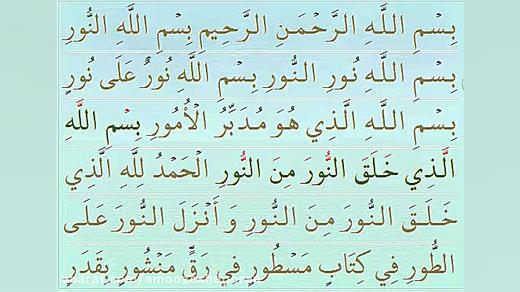 بِسْمِ اللَّهِ الرَّحْمَنِ الرَّحِيمِ بِسْمِ اللَّهِ النُّورِ
بِسْمِ اللَّهِ نُورِ النُّورِ بِسْمِ اللَّهِ نُورٌ عَلَى نُورٍ
بِسْمِ اللَّهِ الَّذِي هُوَ مُدَبِّرُ الْأُمُورِ بِسْمِ اللَّهِ
الَّذِي خَلَقَ النُّورَ مِنَ النُّورِ الْحَمْدُ لِلَّهِ الَّذِي
خَلَقَ النُّورَ مِنَ النُّورِ وَ أَنْزَلَ النُّورَ عَلَى
الطُّورِ فِي كِتَابٍ مَسْطُورٍ فِي رَقٍّ مَنْشُورٍ بِقَدَرٍ